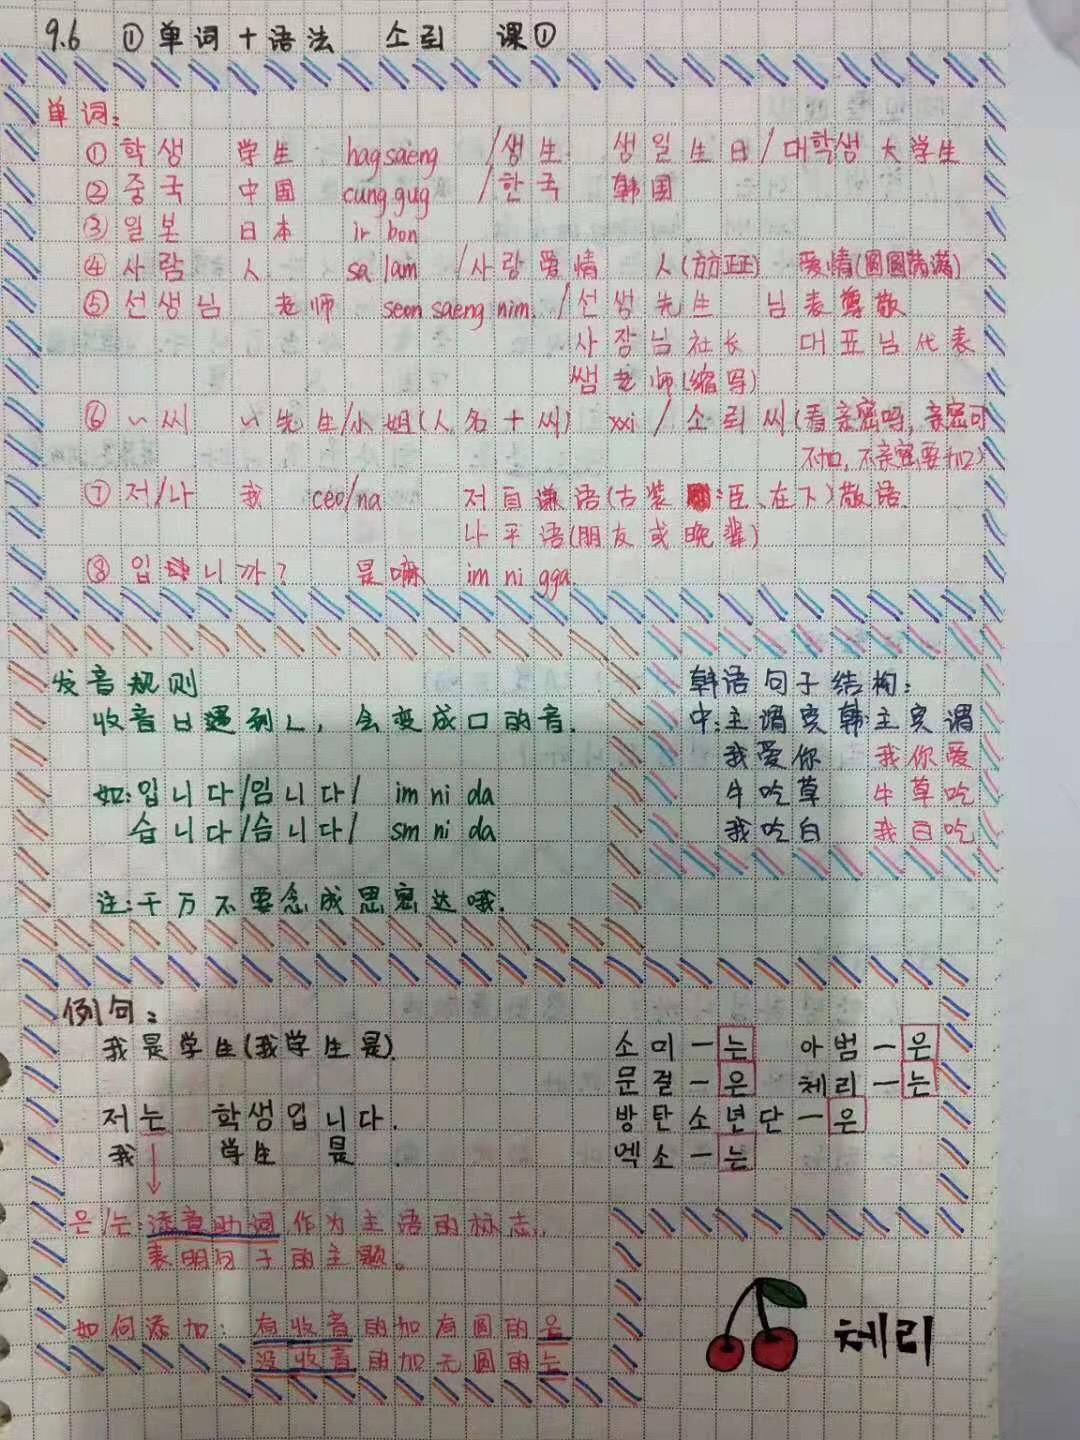 9.6 ①单词+语法 소리 课①
单词:
①학생 学生 hagsaeng /생生 생일生日/대학생 大学生
②중국 中国 cung gug /한국 韩国
③일본 日本 ir bon
④사람 人 sa lam /사랑爱情 人(方方正正) 爱情(圆圆满满)
⑤선생님 老师 seon saeng nim /선생先生 님表尊敬
사장님社长 대표님代表
쌤老师(缩写)
⑥~씨 ~先生/小姐(人名+씨) xxi /소리씨(看亲密吗,亲密可
不加,不亲密要加)
⑦저/나 我 ceo/na 저自谦语(古装:臣、在下)敬语.
나平语(朋友或晚辈)
⑧입니까? 是嘛 im ni gga.
发音规则
收音ㅂ遇到ㄴ,会变成ㅁ的音.
如:입니다/임니다/ im ni da
습니다/슴니다/ sm ni da
注:千万不要念成思密达哦.
韩语句子结构:
中:主谓宾韩:主宾谓
我爱你 我你爱
牛吃草 牛草吃
我吃白 我白吃
例句:
我是学生(我学生是).
저는 학생입니다.
我 学生 是 .
은/는:添意助词作为主语的标志,
表明句子的主题。
如何添加:有收音的加有圆的은
没收音的加无圆的는
소미-는 아범-은
문절-은 체리-는
방탄소년단-은
엑소-는
체리